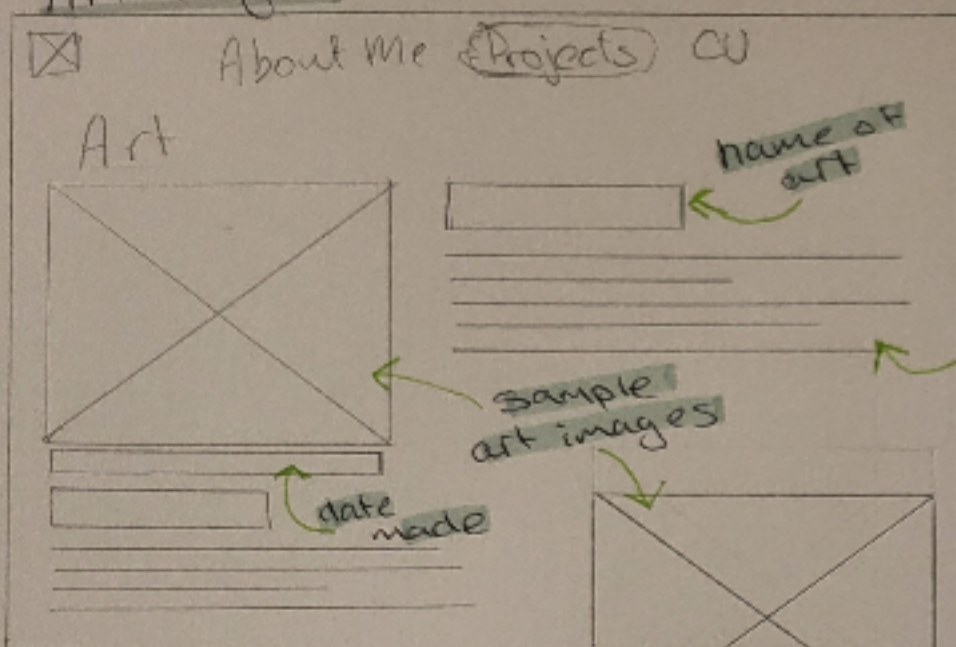 About Me Projects CV
Art
name of
art
sample
art images
date
made